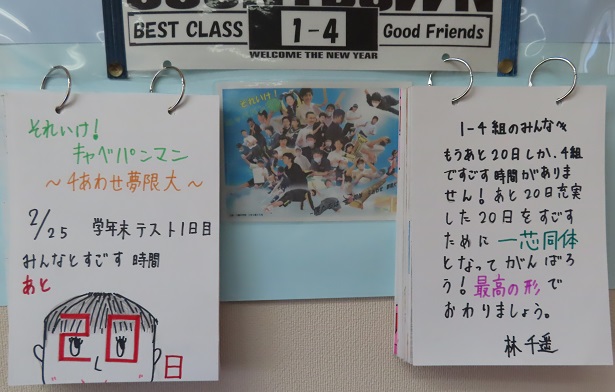 BEST CLASS 1-4 Good Friends
WELCOME THE NEW YEAR
それいけ!
キャベパンマン
〜4あわせ夢限大〜
2/25 学年末テスト1日目
みんなとすごす時間
あと
20日
それいけ!
1-4組のみんなへ
もうあと20日しか、4組
ですごす時間がありま
せん!あと20日充実
した20日をすごす
ために一芯同体
となってがんばろ
う!最高の形で
おわりましょう。
林千遥